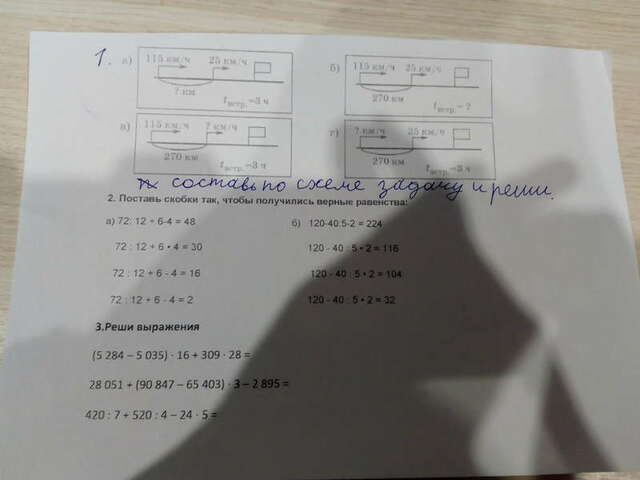 1. а) 115 км/ч 25 км/ч б) 115 км/ч 25 км/ч
? км tвстр.=3 ч 270 км tвстр.= ?
в) 115 км/ч ? км/ч г) ? км/ч 25 км/ч
270 км tвстр.=3 ч 270 км tвстр.=3 ч
составь по схеме задачу и реши.
2. Поставь скобки так, чтобы получились верные равенства:
а) 72: 12 + 6-4 = 48 б) 120-40:5-2 = 224
72 : 12 + 6 • 4 = 30 120 - 40 : 5 • 2 = 116
72 : 12 + 6 - 4 = 16 120 - 40 : 5 • 2 = 104
72 : 12 + 6 - 4 = 2 120 - 40 : 5 • 2 = 32
3.Реши выражения
(5 284 – 5 035) · 16 + 309 · 28 =
28 051 + (90 847 – 65 403) · 3 – 2 895 =
420 : 7 + 520 : 4 – 24 · 5 =